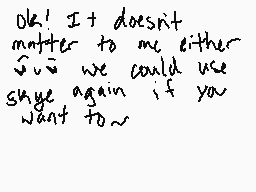 ok! It doesn't
matter to me either
we could use
skye again if you
want to~